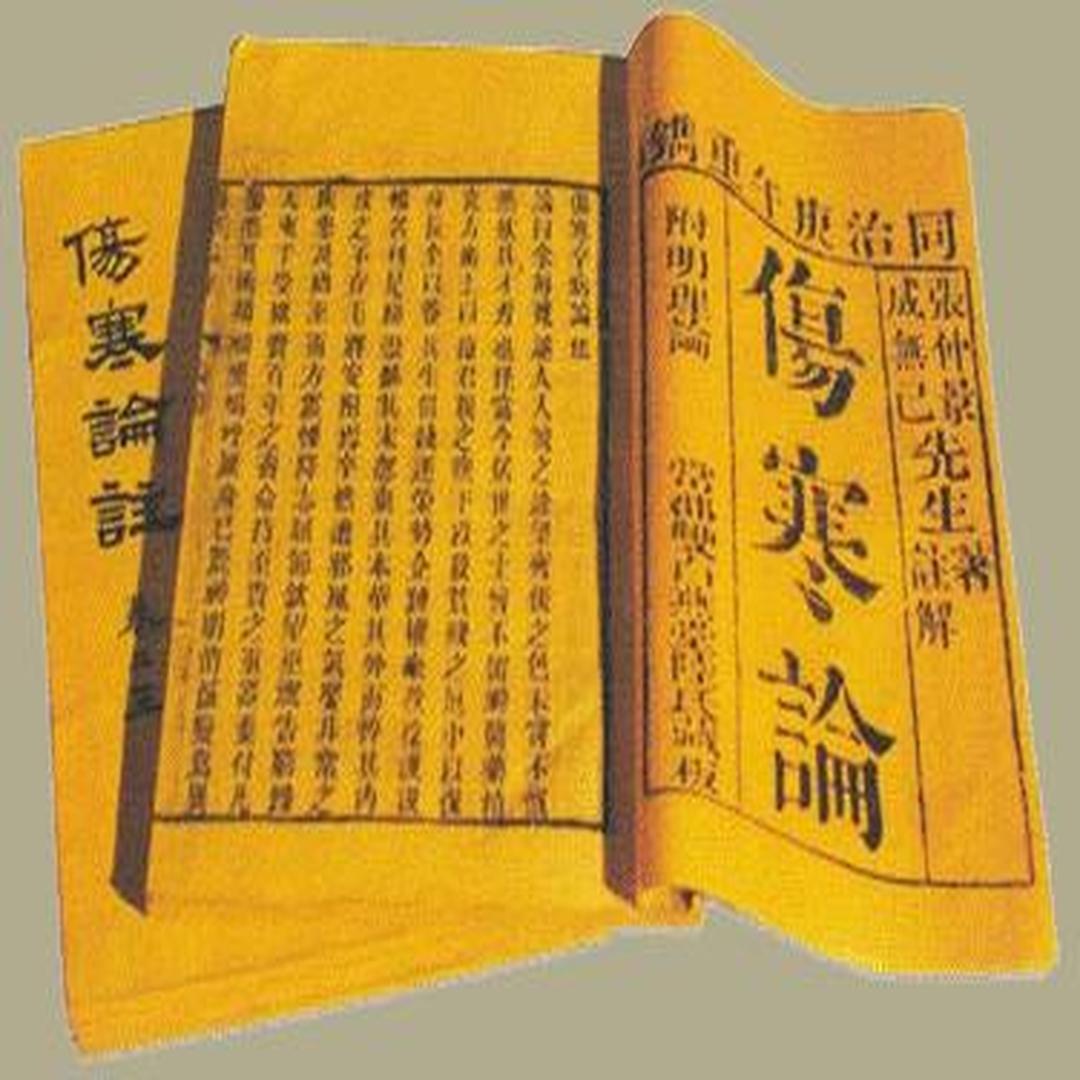 同治庚午重鐫
張仲景先生著
成無己註解
傷寒論
附明理論
常郡雙白燕堂陸氏藏板
傷寒卒病論集
論曰余每覽越人入虢之診望齊侯之色未嘗不慨
然歎其才秀也怪當今居世之士曾不留神醫藥精
究方術上以療君親之疾下以救貧賤之厄中以保
身長全以養其生但競逐榮勢企踵權豪孜孜汲汲
惟名利是務崇飾其末忽棄其本華其外而悴其內
皮之不存毛將安附焉卒然遭邪風之氣嬰非常之
疾患及禍至而方震慄降志屈節欽望巫祝告窮歸
天束手受敗賫百年之壽命持至貴之重器委付凡
醫恣其所措咄嗟嗚呼厥身已斃神明消滅變爲異
傷寒論註